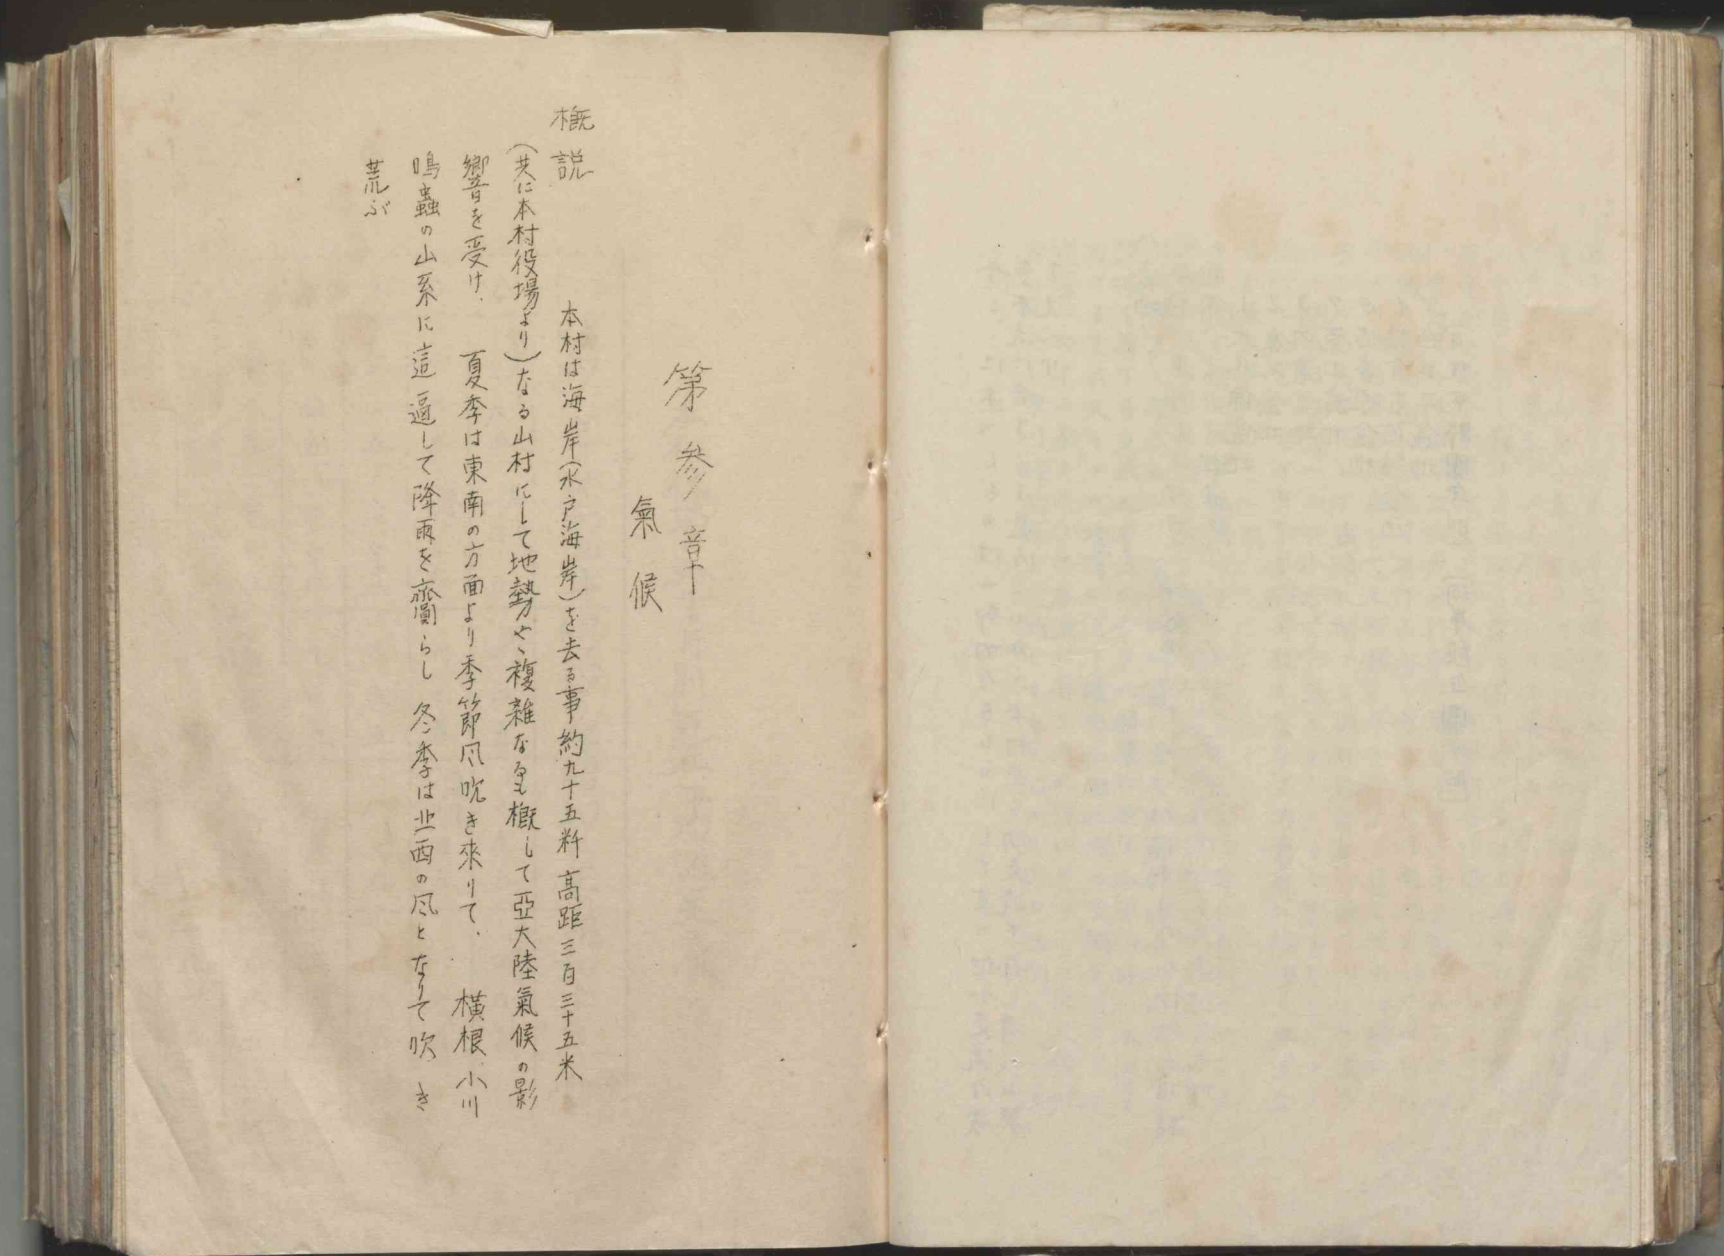 第參章
氣候
概説
本村は海岸(水戸海岸)を去る事約九十五粁高距三百三十五米
(共に本村役場より)なる山村にして地勢やゝ複雜なるも概して亞大陸氣候の影
響を受け、夏季は東南の方面より季節風吹き來りて、橫根、小川
鳴蟲の山系に這逼して降雨を齎らし冬季は北西の風となりて吹き
荒ぶ